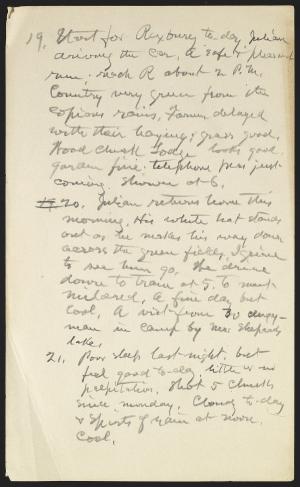 19. Start for Roxbury to-day, Julian
driving the car, A safe & pleasant
run; reach R about 2 P.M.
Country very green from the
copious rains, Farmers delayed
with their haying; grass good,
Wood chuck Lodge looks good.
garden fine. telephone pea just
coming. Shower at 6.
20. Julian returns home this
morning, His white hat stands
out as he makes his way down
across the green fields, I grieve
to see him go, We drive
down to train at 5. to meet
Mildred, A fine day but
cool, A visit from two clergy-
men in camp by Mrs Shepards
lake.
21, Poor sleep last night, but
feel good to-day, little or no
palpitation. Shot 5 Chucks
since monday. Cloudy to-day
& spirts of rain at noon.
Cool.